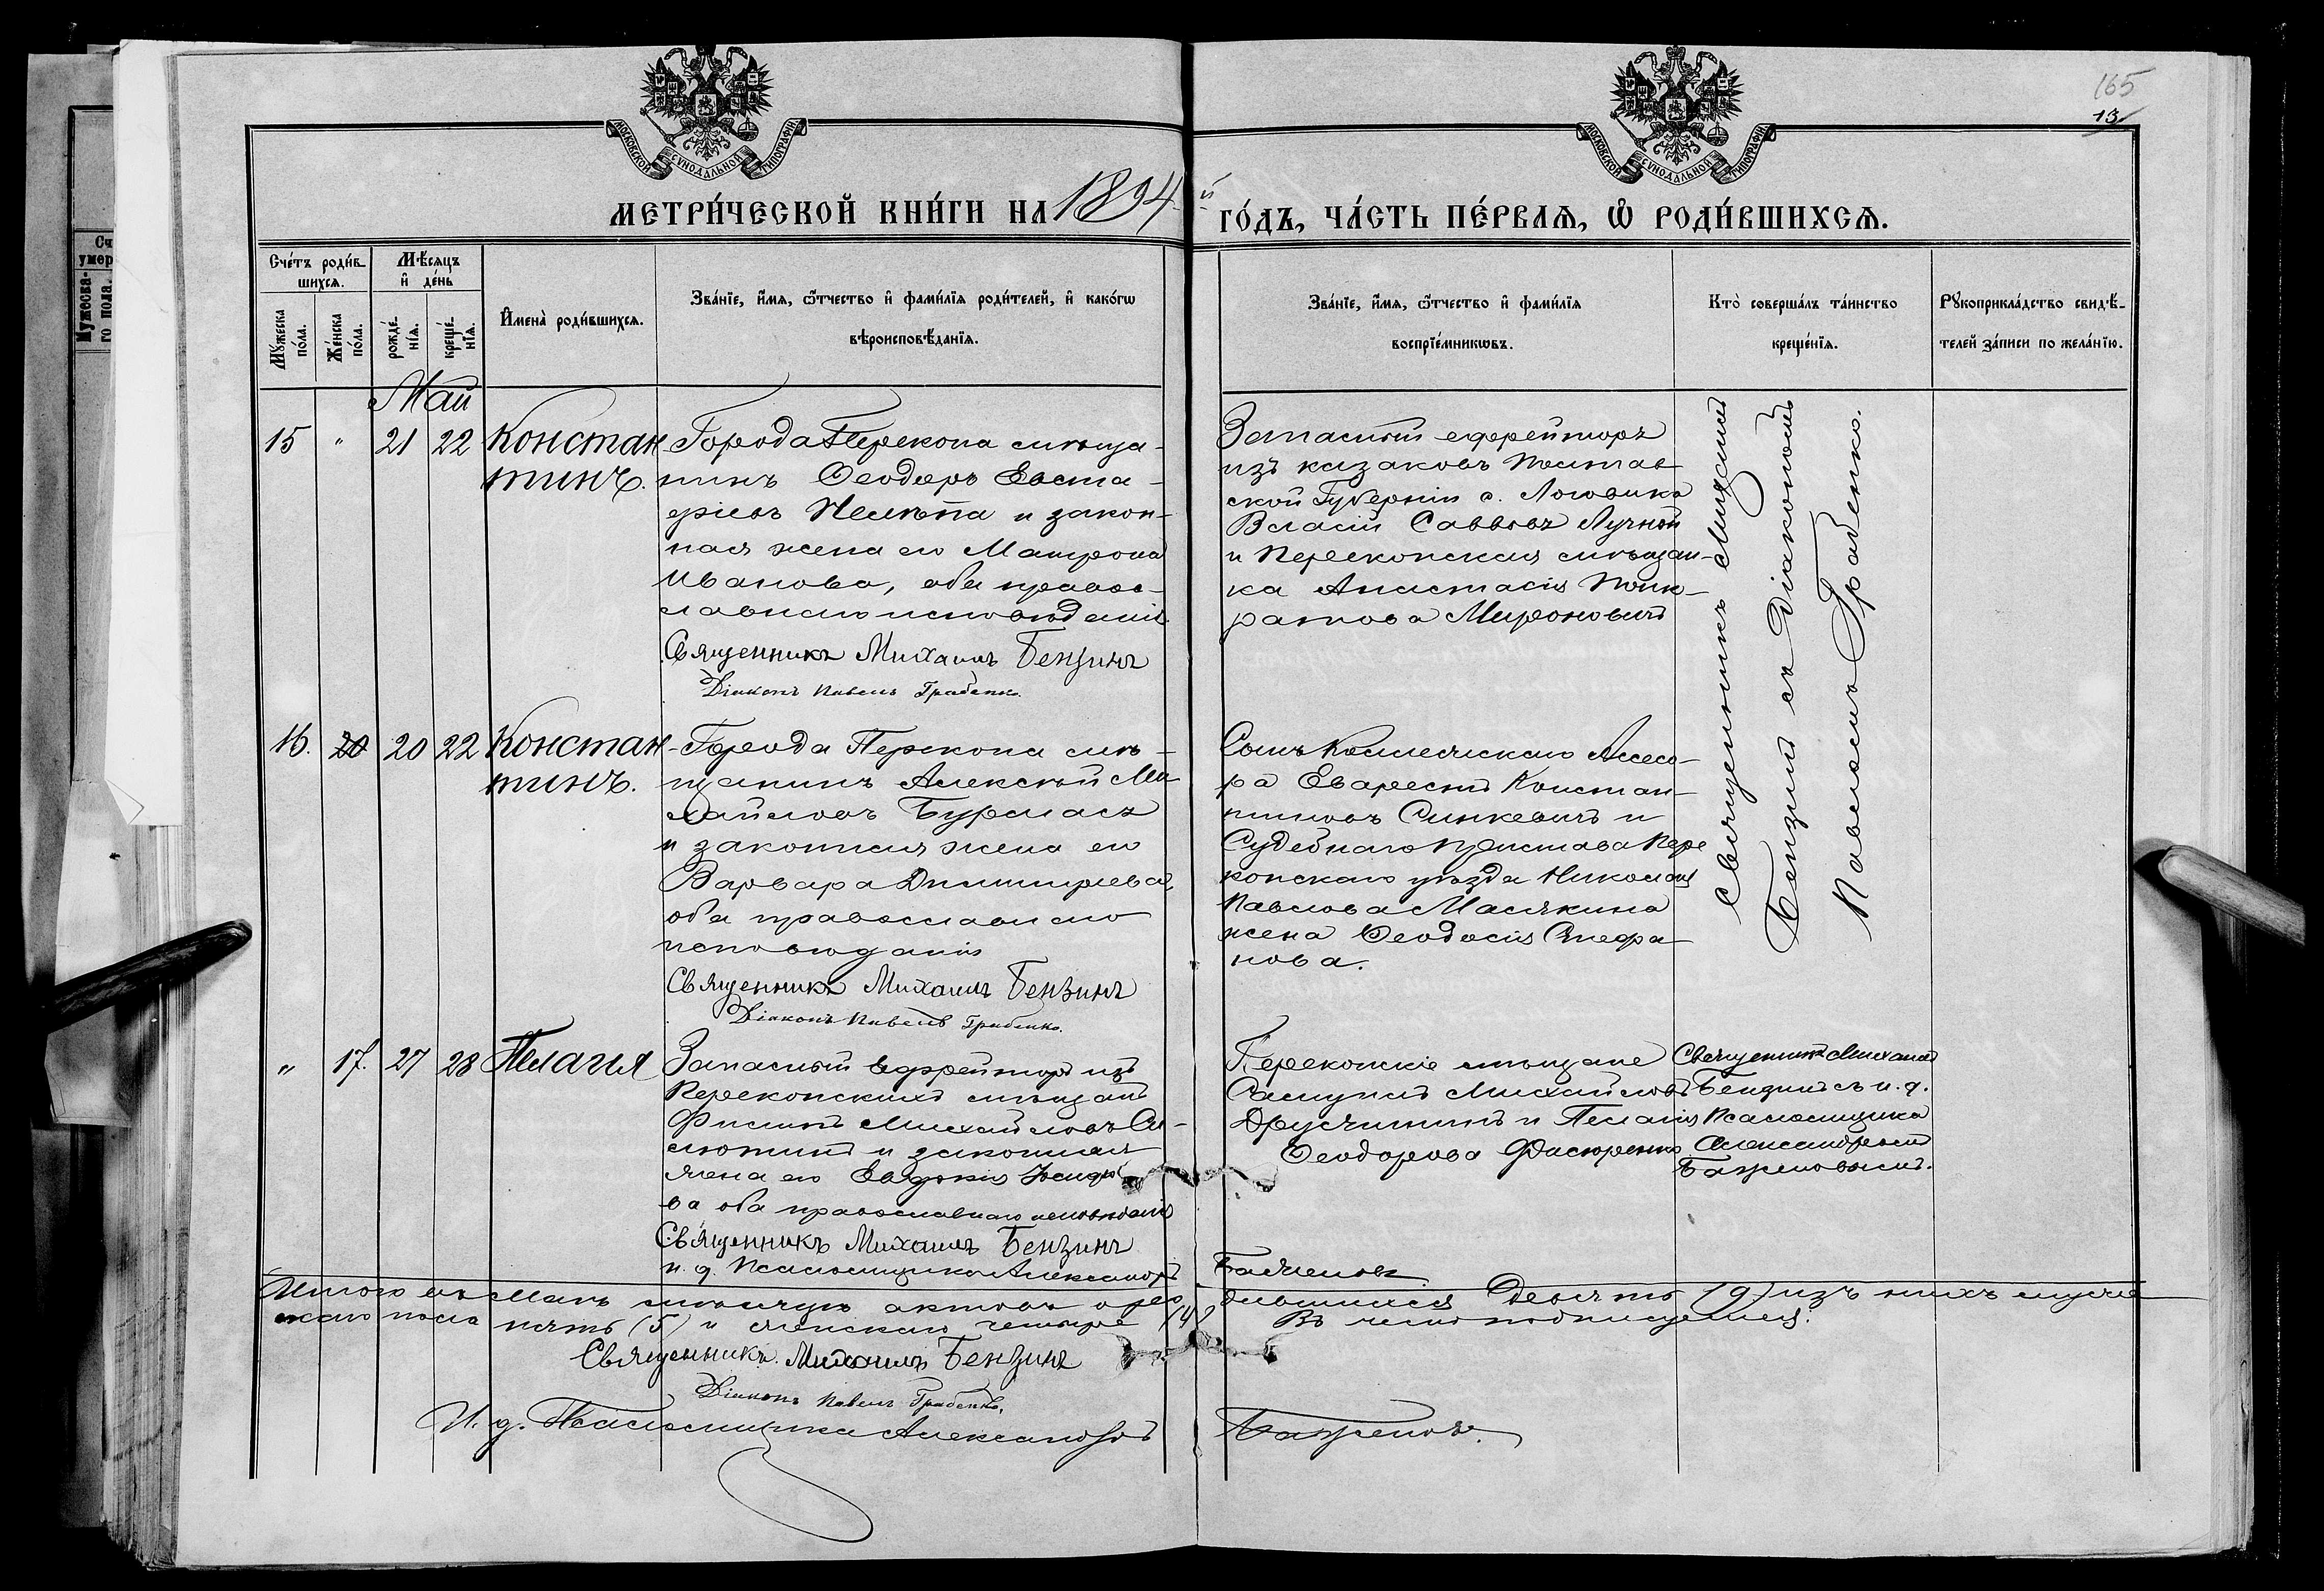 165
13
МОСКОВСКОЙ СѴНОДАЛЬНОЙ ТИПОГРАФІИ
МОСКОВСКОЙ СѴНОДАЛЬНОЙ ТИПОГРАФІИ
МЕТРИ́ЧЕСКОЙ КНИ́ГИ НА 1894 й ГО́ДЪ, ЧА́СТЬ ПЕ́РВАѦ, Ѽ РОДИ́ВШИХСѦ.
Сче́тъ роди́в-
шихсѧ.
Мꙋ́жеска по́ла.
Же́нска по́ла.
Мѣ́сѧцъ и҆ де́нь
рожде́-
нїѧ.
креще́-
нїѧ.
И҆мена̀ роди́вшихсѧ.
Зва́нїе, и҆́мѧ, ѻ҆́тчество и҆ фами́лїѧ роди́телей, и҆ како́гѡ
вѣроисповѣ́данїѧ.
Зва́нїе, и҆́мѧ, ѻ҆́тчество и҆ фами́лїѧ
воспрїе́мникѡвъ.
Кто̀ соверша́лъ та́инство
креще́нїѧ.
Рꙋкоприкла́дство свидѣ́-
телей за́писи по жела́нїю.
Май
15 " 21 22 Констан
тинъ.
Города Перекопа мѣща-
нинъ Ѳеодоръ Евста-
фіевъ и закон-
ная жена его Матрона
Иванова, оба правос-
лавнаго исповѣданія
Священникъ Михаилъ Бензинъ
Діаконъ Павелъ Грабенко.
Запасный ефрейторъ
изъ казаковъ Полтав
ской Губерніи с.
Власій Саввовъ Лучный
и Перекопская мѣщан-
ка Анастасія Панк-
ратова Мироновичъ
Священникъ Михаилъ
Бензинъ съ Діакономъ
Павломъ Грабенко.
16. 20 20 22 Констан
тинъ.
Города Перекопа мѣ-
щанинъ Алексѣй Ми
хайловъ Бурмасъ
и законная жена его
Варвара Димитріева,
оба православнаго
исповѣданія
Священникъ Михаилъ Бензинъ
Діаконъ Павелъ Грабенко.
Сынъ Коллежскаго Ассесо-
ра Еварестъ Констан-
тиновъ Синкевичъ и
Судебнаго Пристава Пере
копскаго уѣзда Николая
Павлова Маслякина
жена Ѳеодосія Стефа-
нова.
" 17. 27 28 Пелагія
Запасный Ефрейторъ изъ
Перекопскихъ мѣщанъ
Филипъ Михайловъ Си-
и законная
жена его Евдокія
ва оба православнаго исповѣданія
Священникъ Михаилъ Бензинъ
и. д. Псаломщика Александръ Баженовъ
Перекопскіе мѣщане
Самуилъ Михайловъ
и Пелагія
Ѳеодорова
Священникъ Михаилъ
Бензинъ съ и. д.
Псаломщика
Александромъ
Баженовымъ.
Итого въ Маѣ мѣсяцѣ актовъ о ро дившихся Девять (9) изъ нихъ муже
скаго пола пять (5) и женскаго четыре (4) Въ чемъ подписуемся:
Священникъ Михаилъ Бензинъ
Діаконъ Павелъ Грабенко.
И. д. Псаломщика Александръ Баженовъ.